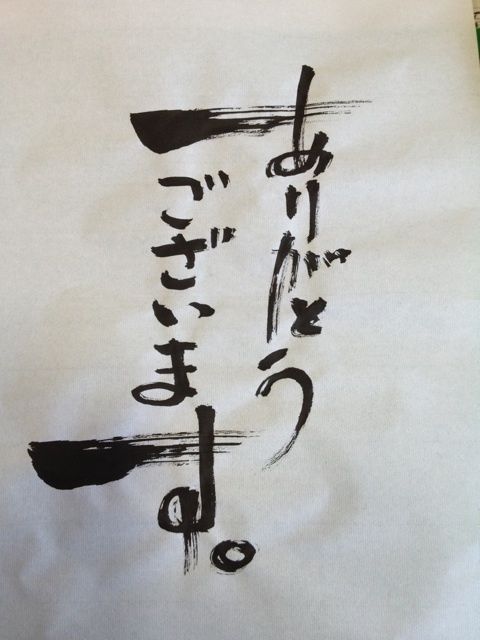 ありがとう
ございます。